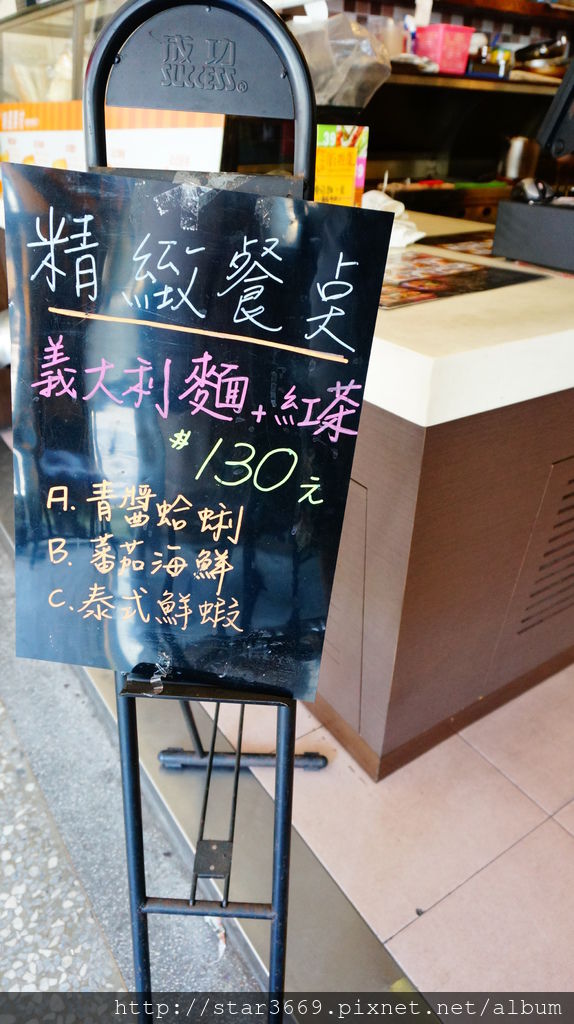 成功
SUCCESS®
39
精緻餐点
義大利麵+紅茶
#130元
A.青醬蛤蜊
B.蕃茄海鮮
C.泰式鮮蝦
http://star3669.pixnet.net/album